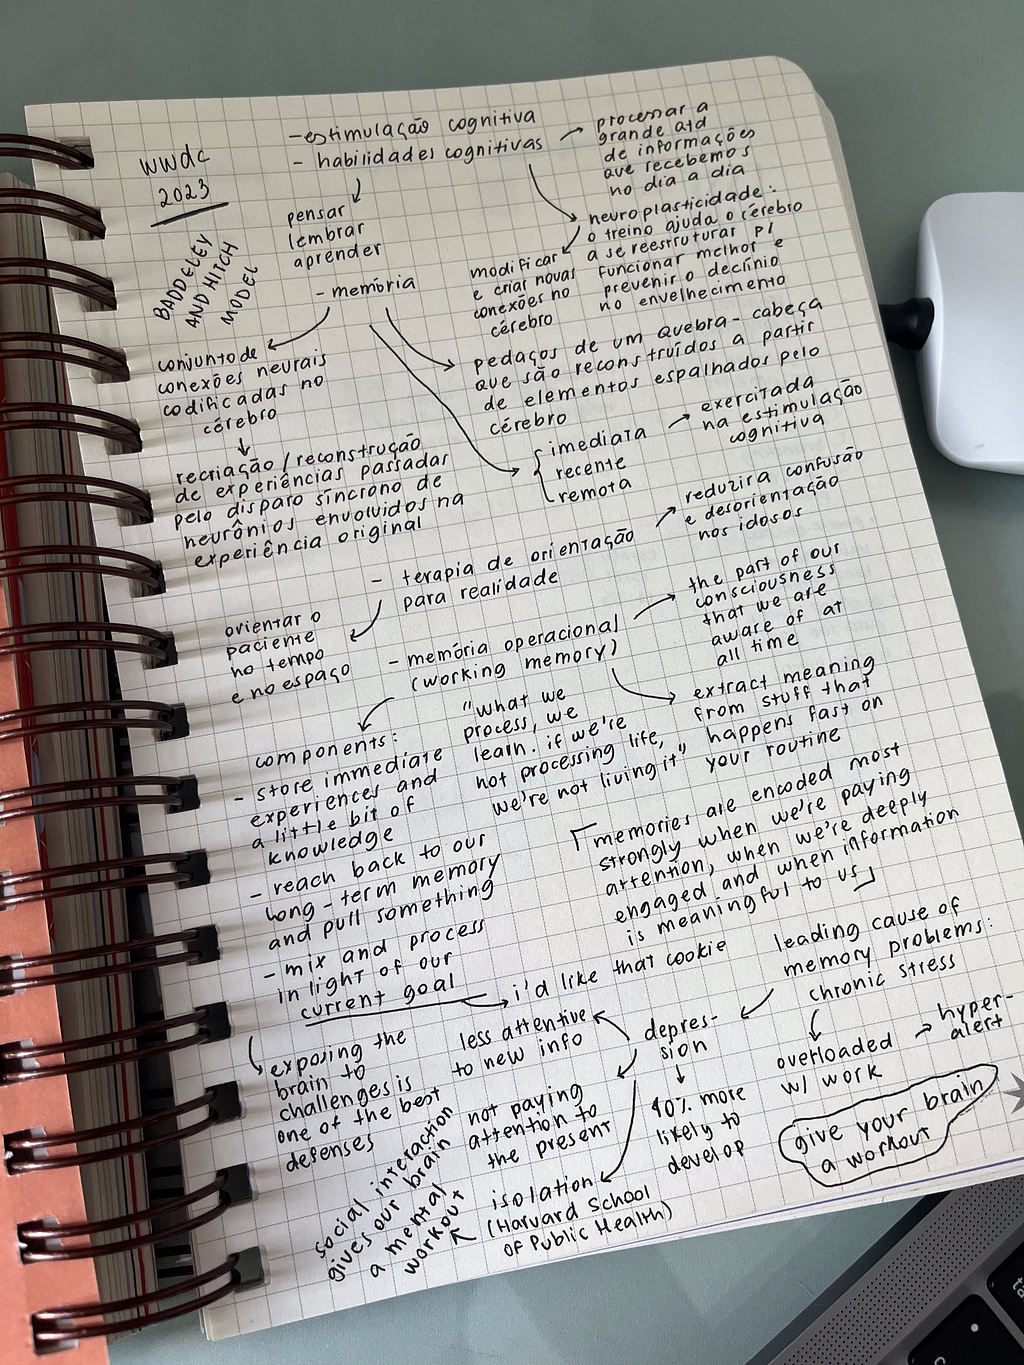 wwdc
2023
BADDELEY
AND HITCH
MODEL
-estimulação cognitiva
- habilidades cognitivas
processar a
grande qtd
de informações
que recebemos
no dia a dia
pensar
lembrar
aprender
neuroplasticidade:
o treino ajuda o cérebro
a se reestruturar p/
funcionar melhor e
prevenir o declínio
no envelhecimento
modificar
e criar novas
conexões no
cérebro
- memória
conjunto de
conexões neurais
codificadas no
cérebro
recriação/reconstrução
de experiências passadas
pelo disparo síncrono de
neurônios envolvidos na
experiência original
pedaços de um quebra-cabeça
que são reconstruídos a partir
de elementos espalhados pelo
cérebro
imediata
recente
remota
exercitada
na estimulação
cognitiva
- terapia de orientação
para realidade
reduzir a confusão
e desorientação
nos idosos
orientar o
paciente
no tempo
e no espaço
- memória operacional
(working memory)
the part of our
consciousness
that we are
aware of at
all time
extract meaning
from stuff that
happens fast on
your routine
components:
- store immediate
experiences and
a little bit of
knowledge
- reach back to our
long-term memory
and pull something
- mix and process
in light of our
current goal
"what we
process, we
learn. if we're
not processing life,
we're not living it"
memories are encoded most
strongly when we're paying
attention, when we're deeply
engaged and when information
is meaningful to us
i'd like that cookie
leading cause of
memory problems:
chronic stress
exposing the
brain to
challenges is
one of the best
defenses
less attentive
to new info
depres-
sion
overloaded
w/ work
hyper-
alert
not paying
attention to
the present
40% more
likely to
develop
give your brain
a workout
isolation
(Harvard School
of Public Health)
social interaction
gives our brain
a mental
workout